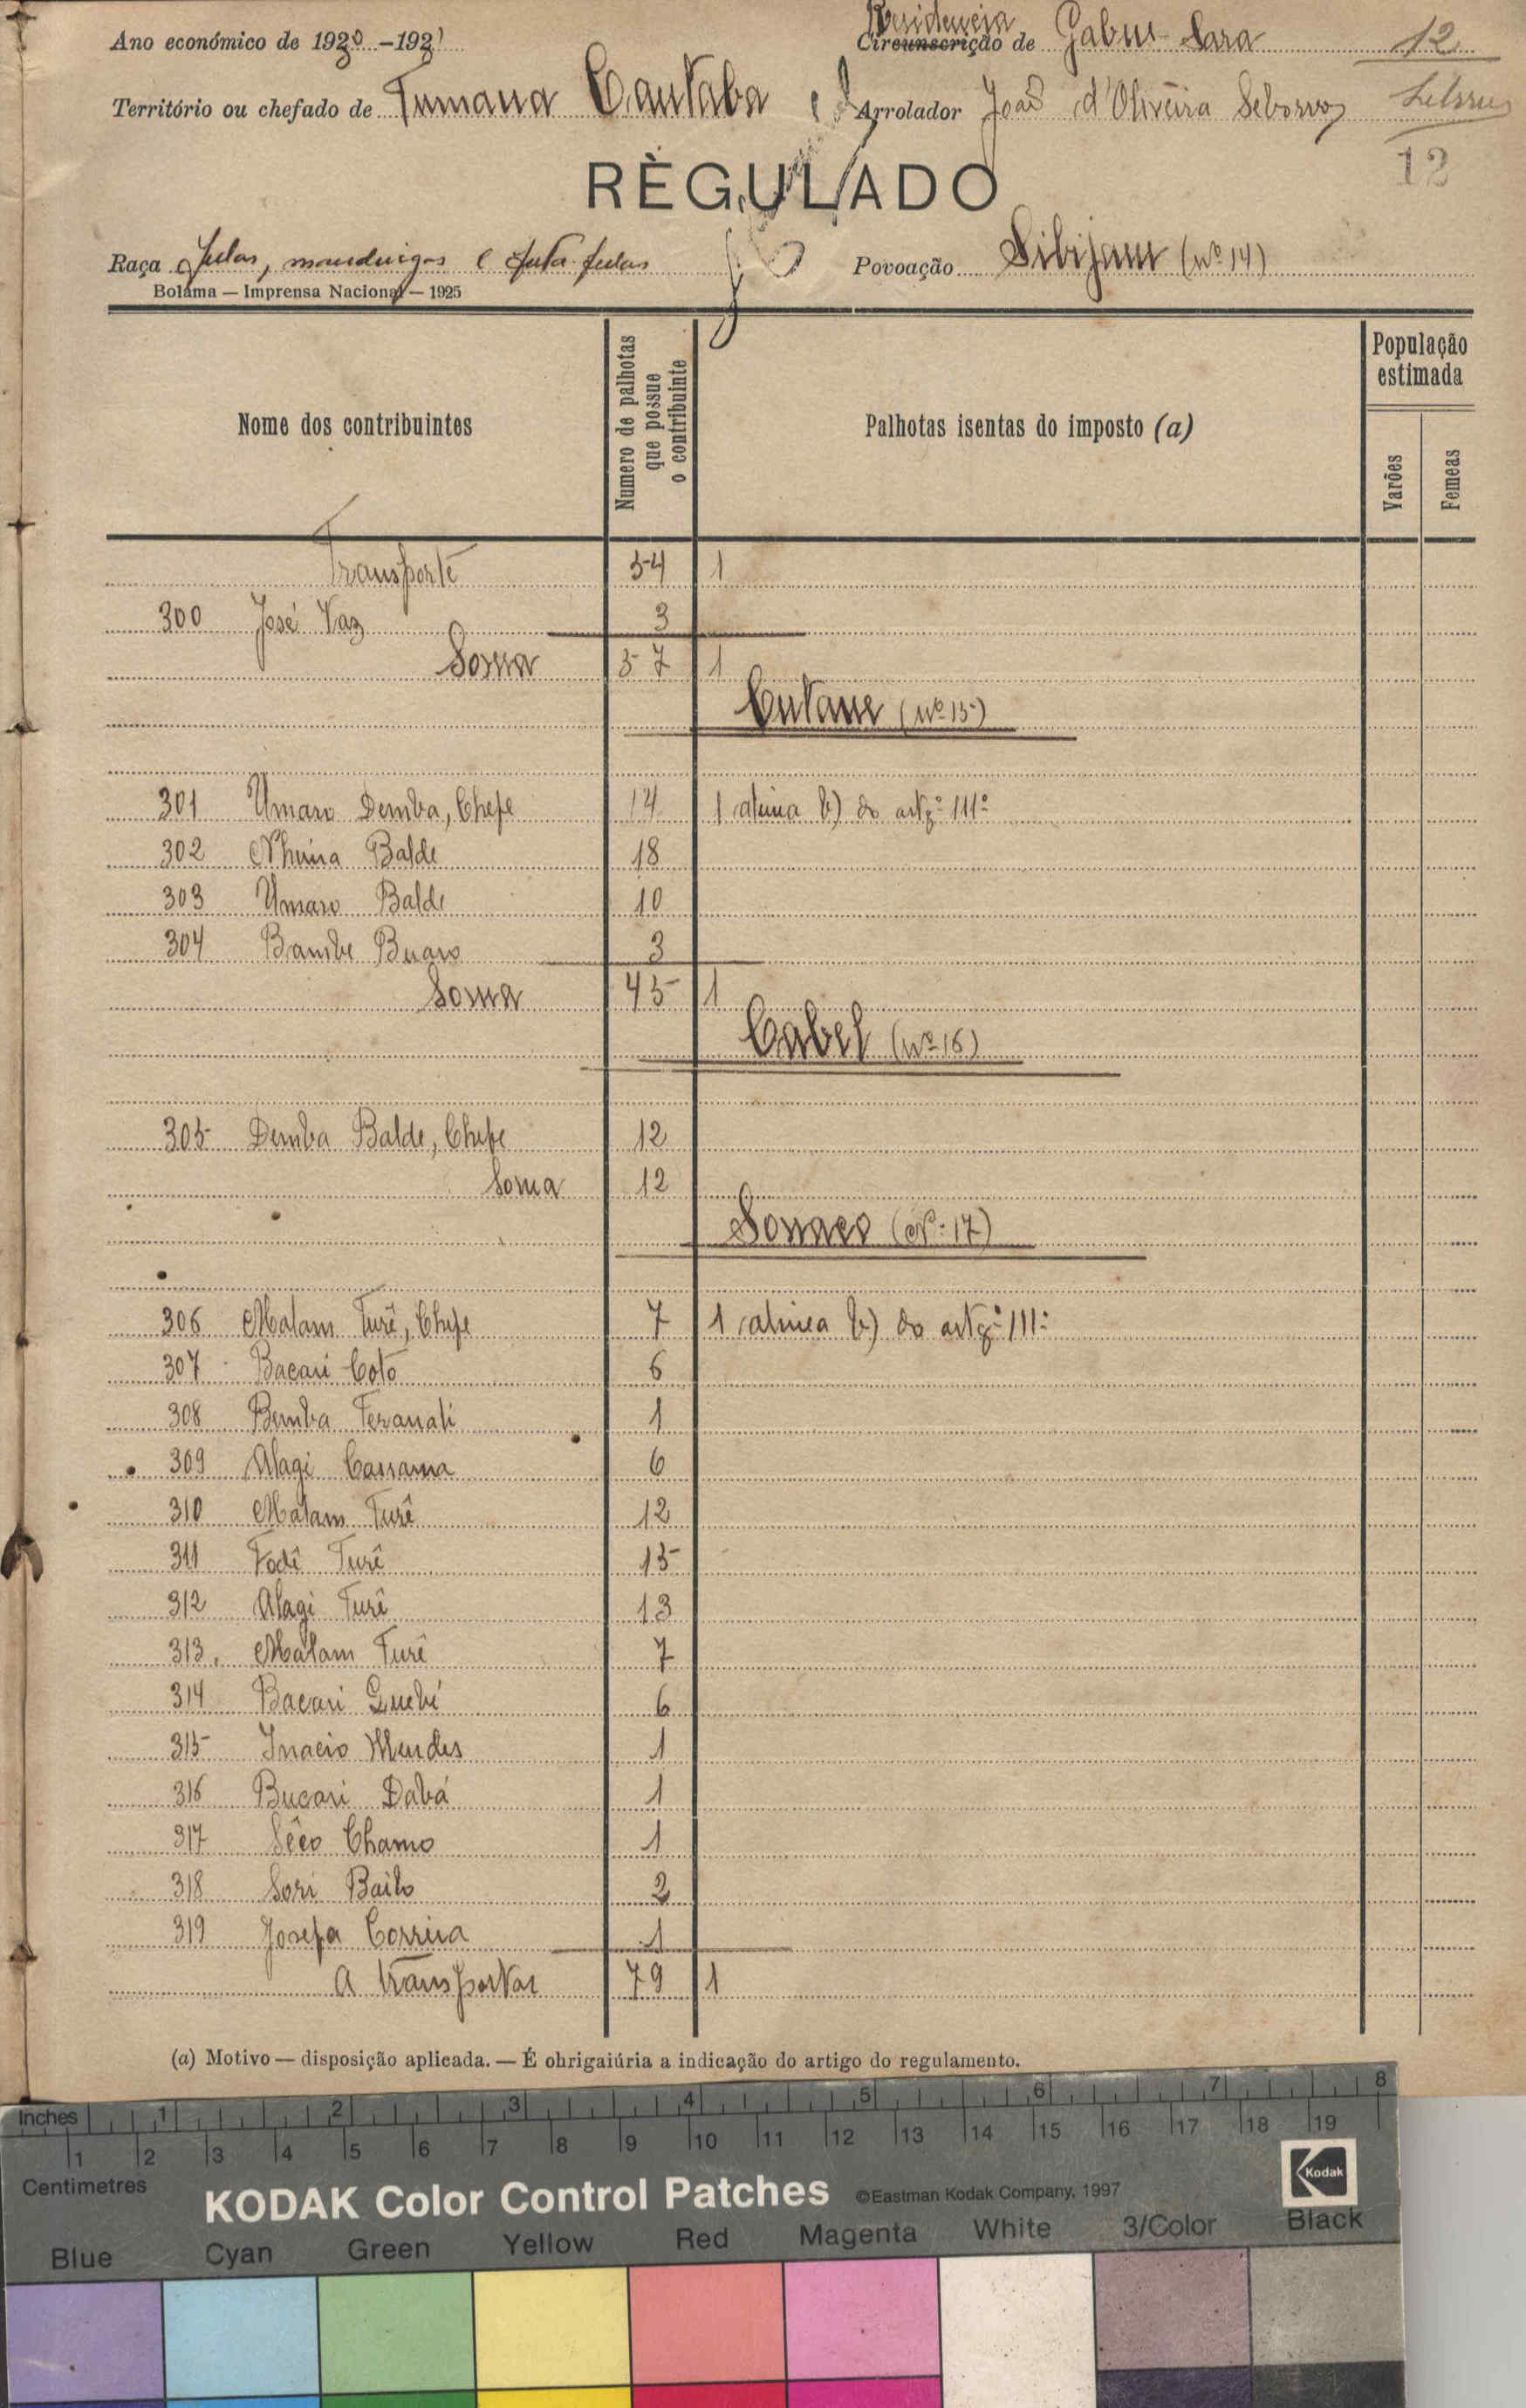 Ano económico de 1930-1931
Residencia
Circunscrição de Gabu Sara 12
Território ou chefado de Tumana Cantaba Arrolador João d'Oliveira
12
RÈGULADO
Raça Fulas, mandingas e futa-fulas Povoação Sibijam (nº 14)
Bolama — Imprensa Nacional — 1925
Nome dos contribuintes
Numero de palhotas que possue o contribuinte
Palhotas isentas do imposto (a)
População estimada
Varões
Femeas
Transporte 54 1
300 José Vaz 3
Soma 57 1
Cutane (nº 15)
301 Umaro Demba, Chefe 14 1 alinea b) do artgº 111º
302 Balde 18
303 Umaro Balde 10
304 Bambe Buaro 3
Soma 45 1
Cabel (nº 16)
305 Demba Balde, Chefe 12
Soma 12
Sonaco (Nº 17)
306 Malam Turê, Chefe 7 1 alinea b) do artgº 111º
307 Bacari Coto 6
308 Bemba 1
309 Alagi Cassama 6
310 Malam Turê 12
311 Fodê Turê 15
312 Alagi Turê 13
313 Malam Turê 7
314 Bacari Quebé 6
315 Inacio Mendes 1
316 Bucari Dabá 1
317 Sêco Chamo 1
318 Sori Bailo 2
319 Josefa Correia 1
A transportar 79 1
(a) Motivo — disposição aplicada. — É obrigaiúria a indicação do artigo do regulamento.
Inches 1 2 3 4 5 6 7 8
1 2 3 4 5 6 7 8 9 10 11 12 13 14 15 16 17 18 19
Centimetres
KODAK Color Control Patches ©Eastman Kodak Company, 1997 Kodak
Blue Cyan Green Yellow Red Magenta White 3/Color Black